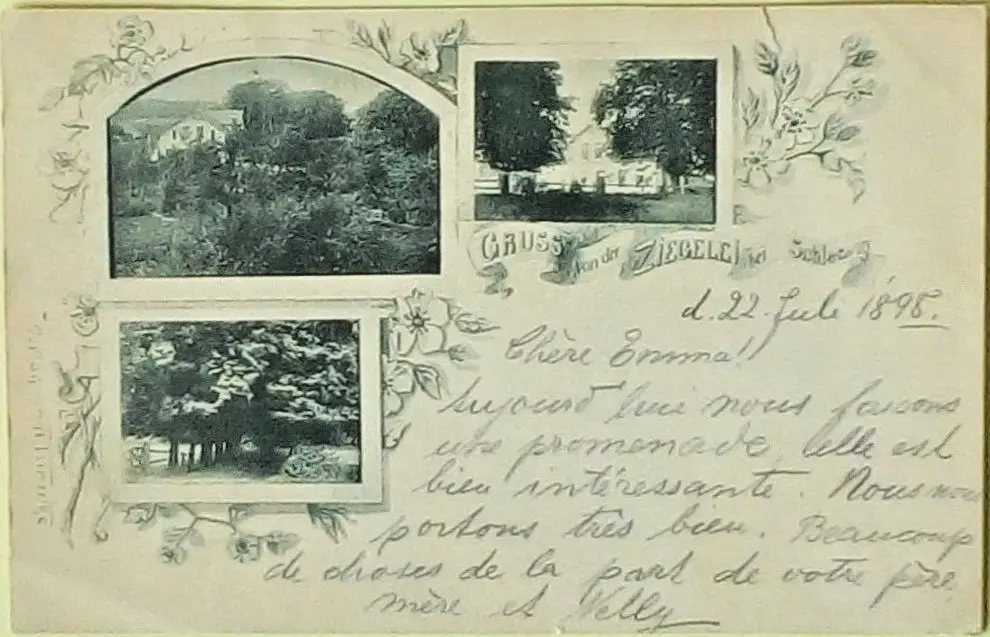 GRUSS von der ZIEGELEI bei
d. 22. Juli 1898.
Chère Emma!
Aujourd'hui nous faisons
une promenade, elle est
bien intéressante. Nous nous
portons très bien. Beaucoup
de choses de la part de votre père
mère et Nelly